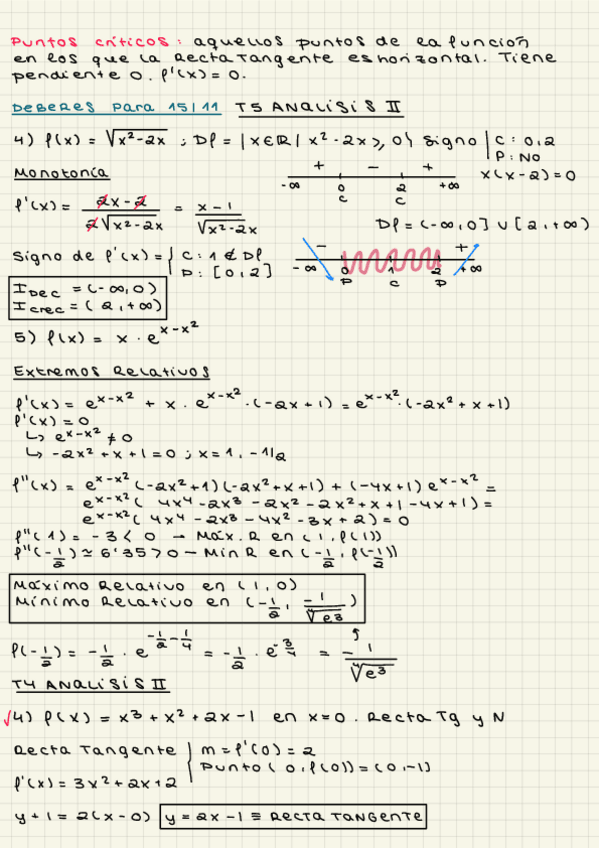 Puntos críticos: aquellos puntos de la función
en los que la recta tangente es horizontal. Tiene
pendiente 0. f'(x) = 0.
Deberes para 15/11 T5 ANALISIS II
4) f(x) = √(x²-2x) ; Df = {x∈ℝ / x²-2x ≥ 0} Signo | C: 0,2
P: NO
x(x-2)=0
Monotonía
+ - +
-∞ 0 2 +∞
C C
f'(x) = (2x-2)/(2√(x²-2x)) = (x-1)/√(x²-2x)
Df = (-∞,0] ∪ [2,+∞)
Signo de f'(x) = { C: 1 ∉ Df
D: [0,2]
- +
-∞ 0 1 2 +∞
D C D
I Dec = (-∞,0)
I crec = (2,+∞)
5) f(x) = x·e^(x-x²)
Extremos Relativos
f'(x) = e^(x-x²) + x·e^(x-x²)·(-2x+1) = e^(x-x²)·(-2x²+x+1)
f'(x) = 0
↳ e^(x-x²) ≠ 0
↳ -2x²+x+1=0 ; x=1, -1/2
f''(x) = e^(x-x²)(-2x²+1)(-2x²+x+1) + (-4x+1)e^(x-x²) =
e^(x-x²)(4x⁴-2x³-2x²-2x²+x+1-4x+1) =
e^(x-x²)(4x⁴-2x³-4x²-3x+2) = 0
f''(1) = -3 < 0 → Máx. R en (1, f(1))
f''(-1/2) ≃ 6'35 > 0 → Min R en (-1/2, f(-1/2))
Máximo Relativo en (1,0)
Mínimo Relativo en (-1/2, -1/⁴√e³)
f(-1/2) = -1/2·e^(-1/2-1/4) = -1/2·e^(-3/4) = -1/⁴√e³
T4 ANALISIS II
√4) f(x) = x³+x²+2x-1 en x=0. Recta Tg y N
Recta Tangente | m = f'(0) = 2
Punto (0, f(0)) = (0,-1)
f'(x) = 3x²+2x+2
y+1 = 2(x-0) y = 2x-1 ≡ RECTA TANGENTE